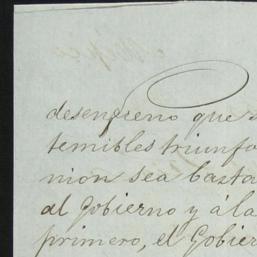 desenfreno que
temibles triunfo
nion sea basta
al Gobierno y á la
primero, el Gobier